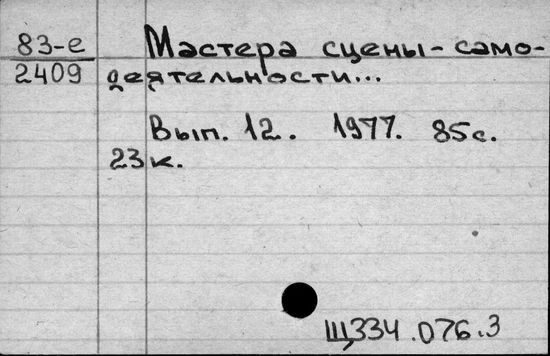 83-е Мастера сцены-само-
2409 деятельности...
Вып. 12. 1977. 85с.
23к.
Щ334.076.3